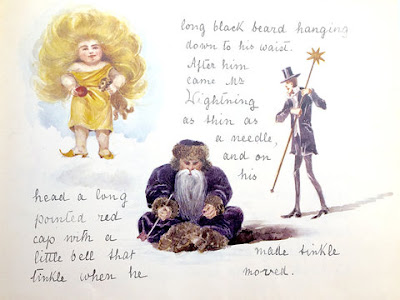 long black beard hanging
down to his waist.
After him
came Mr
Lightning
as thin as
a needle,
and on
his
head a long
pointed red
cap with a
little bell that
made tinkle
tinkle when he
moved.